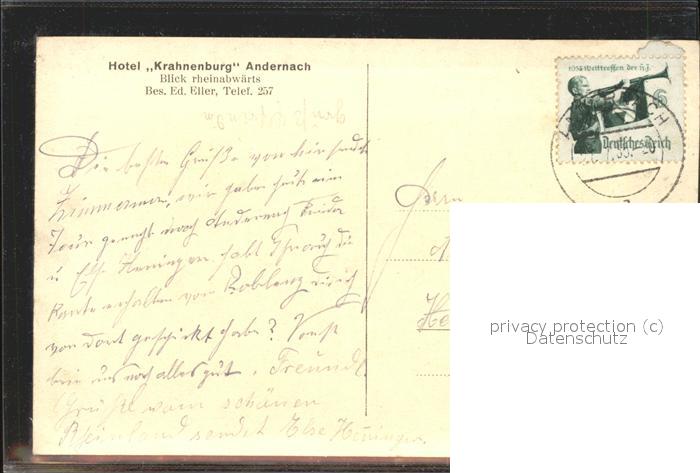 Hotel „Krahnenburg“ Andernach
Blick rheinabwärts
Bes. Ed. Eller, Telef. 257
Die besten Grüße von hier sendet
Zimmermann, wir haben heute eine
Tour gemacht nach Andernach
u Else Heninger. habt Ihr auch die
Karte erhalten von Koblenz die ich
von dort geschickt habe? Sonst
bei uns noch alles gut. Freundl.
Grüße vom schönen
Rheinland sendet Else Heninger.
1935 Welttreffen der H.J.
6
Deutsches Reich
Herrn
He
privacy protection (c)
Datenschutz